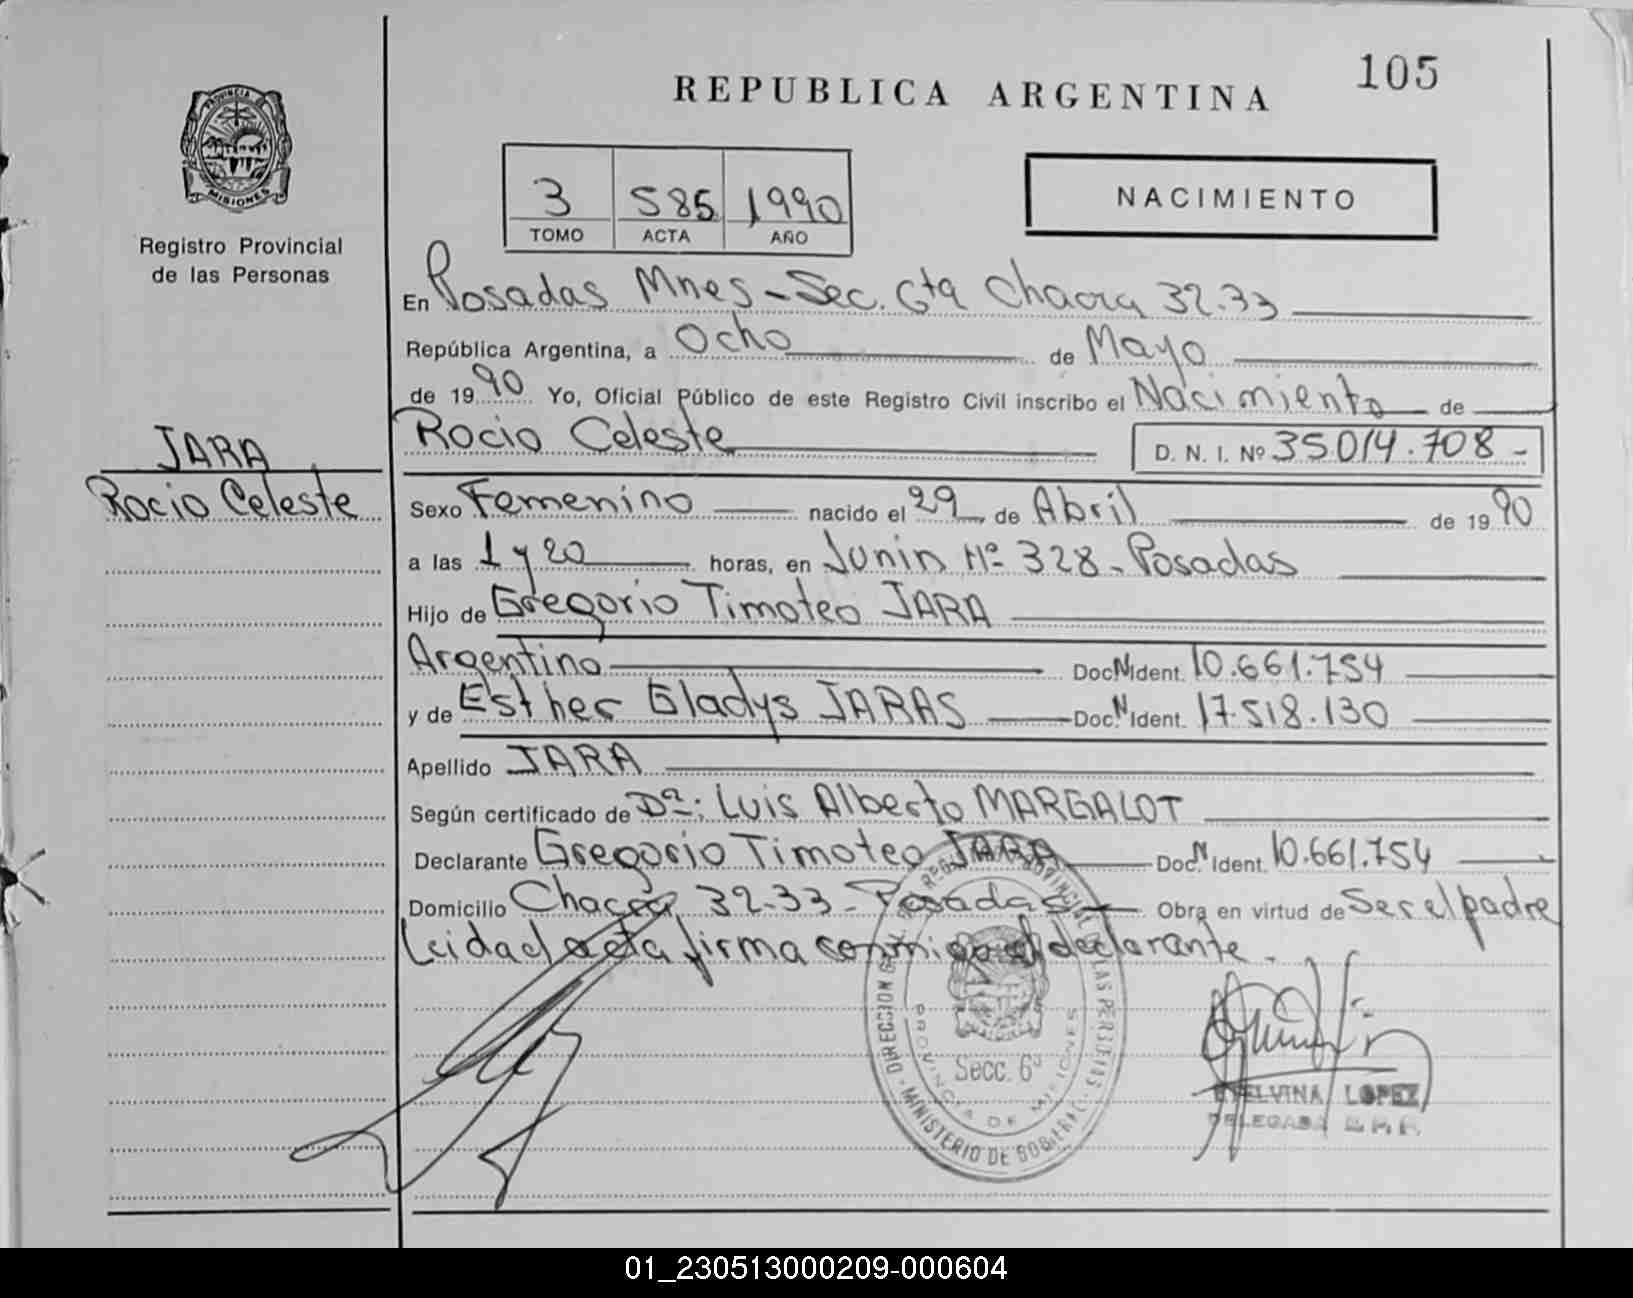 105
REPUBLICA ARGENTINA
PROVINCIA DE MISIONES
Registro Provincial
de las Personas
3 585 1990
TOMO ACTA AÑO
NACIMIENTO
En Posadas Mnes - Sec. 6ta Chacra 32-33
República Argentina, a Ocho de Mayo
de 1990 Yo, Oficial Público de este Registro Civil inscribo el Nacimiento de
Rocio Celeste D. N. I. Nº 35.014.708 -
JARA,
Rocio Celeste
Sexo Femenino nacido el 29 de Abril de 1990
a las 1 y 20 horas, en Junin Nº 328 - Posadas
Hijo de Gregorio Timoteo JARA
Argentino Doc. N Ident. 10.661.754
y de Esther Gladys JARAS Doc. N Ident. 17.518.130
Apellido JARA
Según certificado de Dº: Luis Alberto MARGALOT
Declarante Gregorio Timoteo JARA Doc. N Ident. 10.661.754
Domicilio Chacra 32-33 - Posadas Obra en virtud de Ser el padre
Leida el acta firma conmigo el declarante.
DIRECCION GRAL. DEL REGISTRO PROVINCIAL DE LAS PERSONAS
MINISTERIO DE GOBIERNO
PROVINCIA DE MISIONES
Secc. 6ª
LOPEZ
DELEGADA
01_230513000209-000604